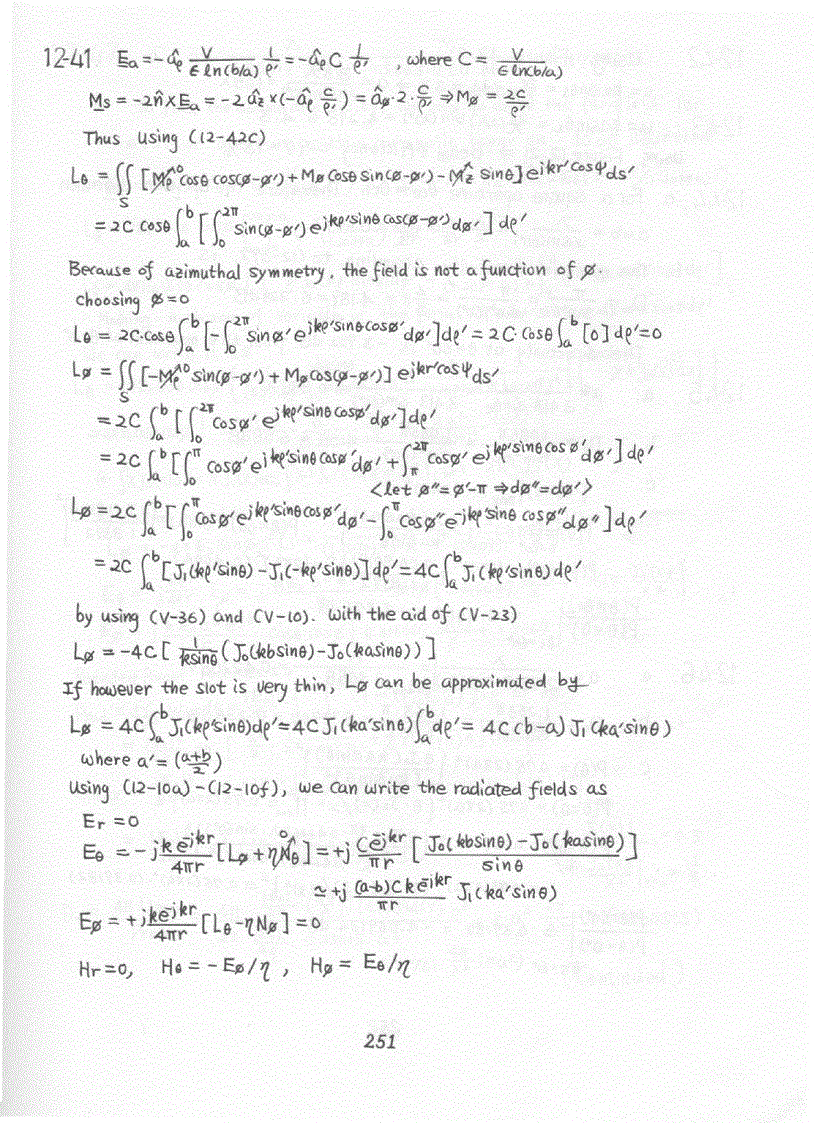 12-41 E̲a = -âρ V/(ε ln(b/a)) 1/ρ' = -âρ C 1/ρ' , where C = V/(ε ln(b/a))
M̲s = -2n̂ × E̲a = -2 âz × (-âρ C/ρ') = âø·2·C/ρ' ⇒ Mø = 2C/ρ'
Thus using (12-42c)
Lθ = ∬S [Mρ↗0 cosθ cos(ø-ø') + Mø cosθ sin(ø-ø') - Mz↗0 sinθ] e^{jkr'cosψ} ds'
= 2C cosθ ∫_a^b [∫_0^{2π} sin(ø-ø') e^{jkρ'sinθcos(ø-ø')} dø'] dρ'
Because of azimuthal symmetry, the field is not a function of ø.
choosing ø=0
Lθ = 2C·cosθ ∫_a^b [-∫_0^{2π} sinø' e^{jkρ'sinθcosø'} dø'] dρ' = 2C·cosθ ∫_a^b [0] dρ' = 0
Lø = ∬S [-Mρ↗0 sin(ø-ø') + Mø cos(ø-ø')] e^{jkr'cosψ} ds'
= 2C ∫_a^b [∫_0^{2π} cosø' e^{jkρ'sinθcosø'} dø'] dρ'
= 2C ∫_a^b [∫_0^π cosø' e^{jkρ'sinθcosø'} dø' + ∫_π^{2π} cosø' e^{jkρ'sinθcosø'} dø'] dρ'
<let ø''=ø'-π ⇒ dø''=dø'>
Lø = 2C ∫_a^b [∫_0^π cosø' e^{jkρ'sinθcosø'} dø' - ∫_0^π cosø'' e^{-jkρ'sinθcosø''} dø''] dρ'
= 2C ∫_a^b [J₁(kρ'sinθ) - J₁(-kρ'sinθ)] dρ' = 4C ∫_a^b J₁(kρ'sinθ) dρ'
by using (V-36) and (V-10). With the aid of (V-23)
Lø = -4C [ 1/(k sinθ) (J₀(kbsinθ) - J₀(kasinθ)) ]
If however the slot is very thin, Lø can be approximated by
Lø = 4C ∫_a^b J₁(kρ'sinθ) dρ' ≃ 4C J₁(ka'sinθ) ∫_a^b dρ' = 4C(b-a) J₁(ka'sinθ)
where a' = ((a+b)/2)
Using (12-10a)-(12-10f), we can write the radiated fields as
Er = 0
Eθ = -j ke^{-jkr}/(4πr) [Lø + ηNθ↗0] = +j Ce^{-jkr}/(πr) [ (J₀(kbsinθ) - J₀(kasinθ))/sinθ ]
≃ +j (a-b)Cke^{-jkr}/(πr) J₁(ka'sinθ)
Eø = +jke^{-jkr}/(4πr) [Lθ - ηNø] = 0
Hr = 0, Hθ = -Eø/η , Hø = Eθ/η
251